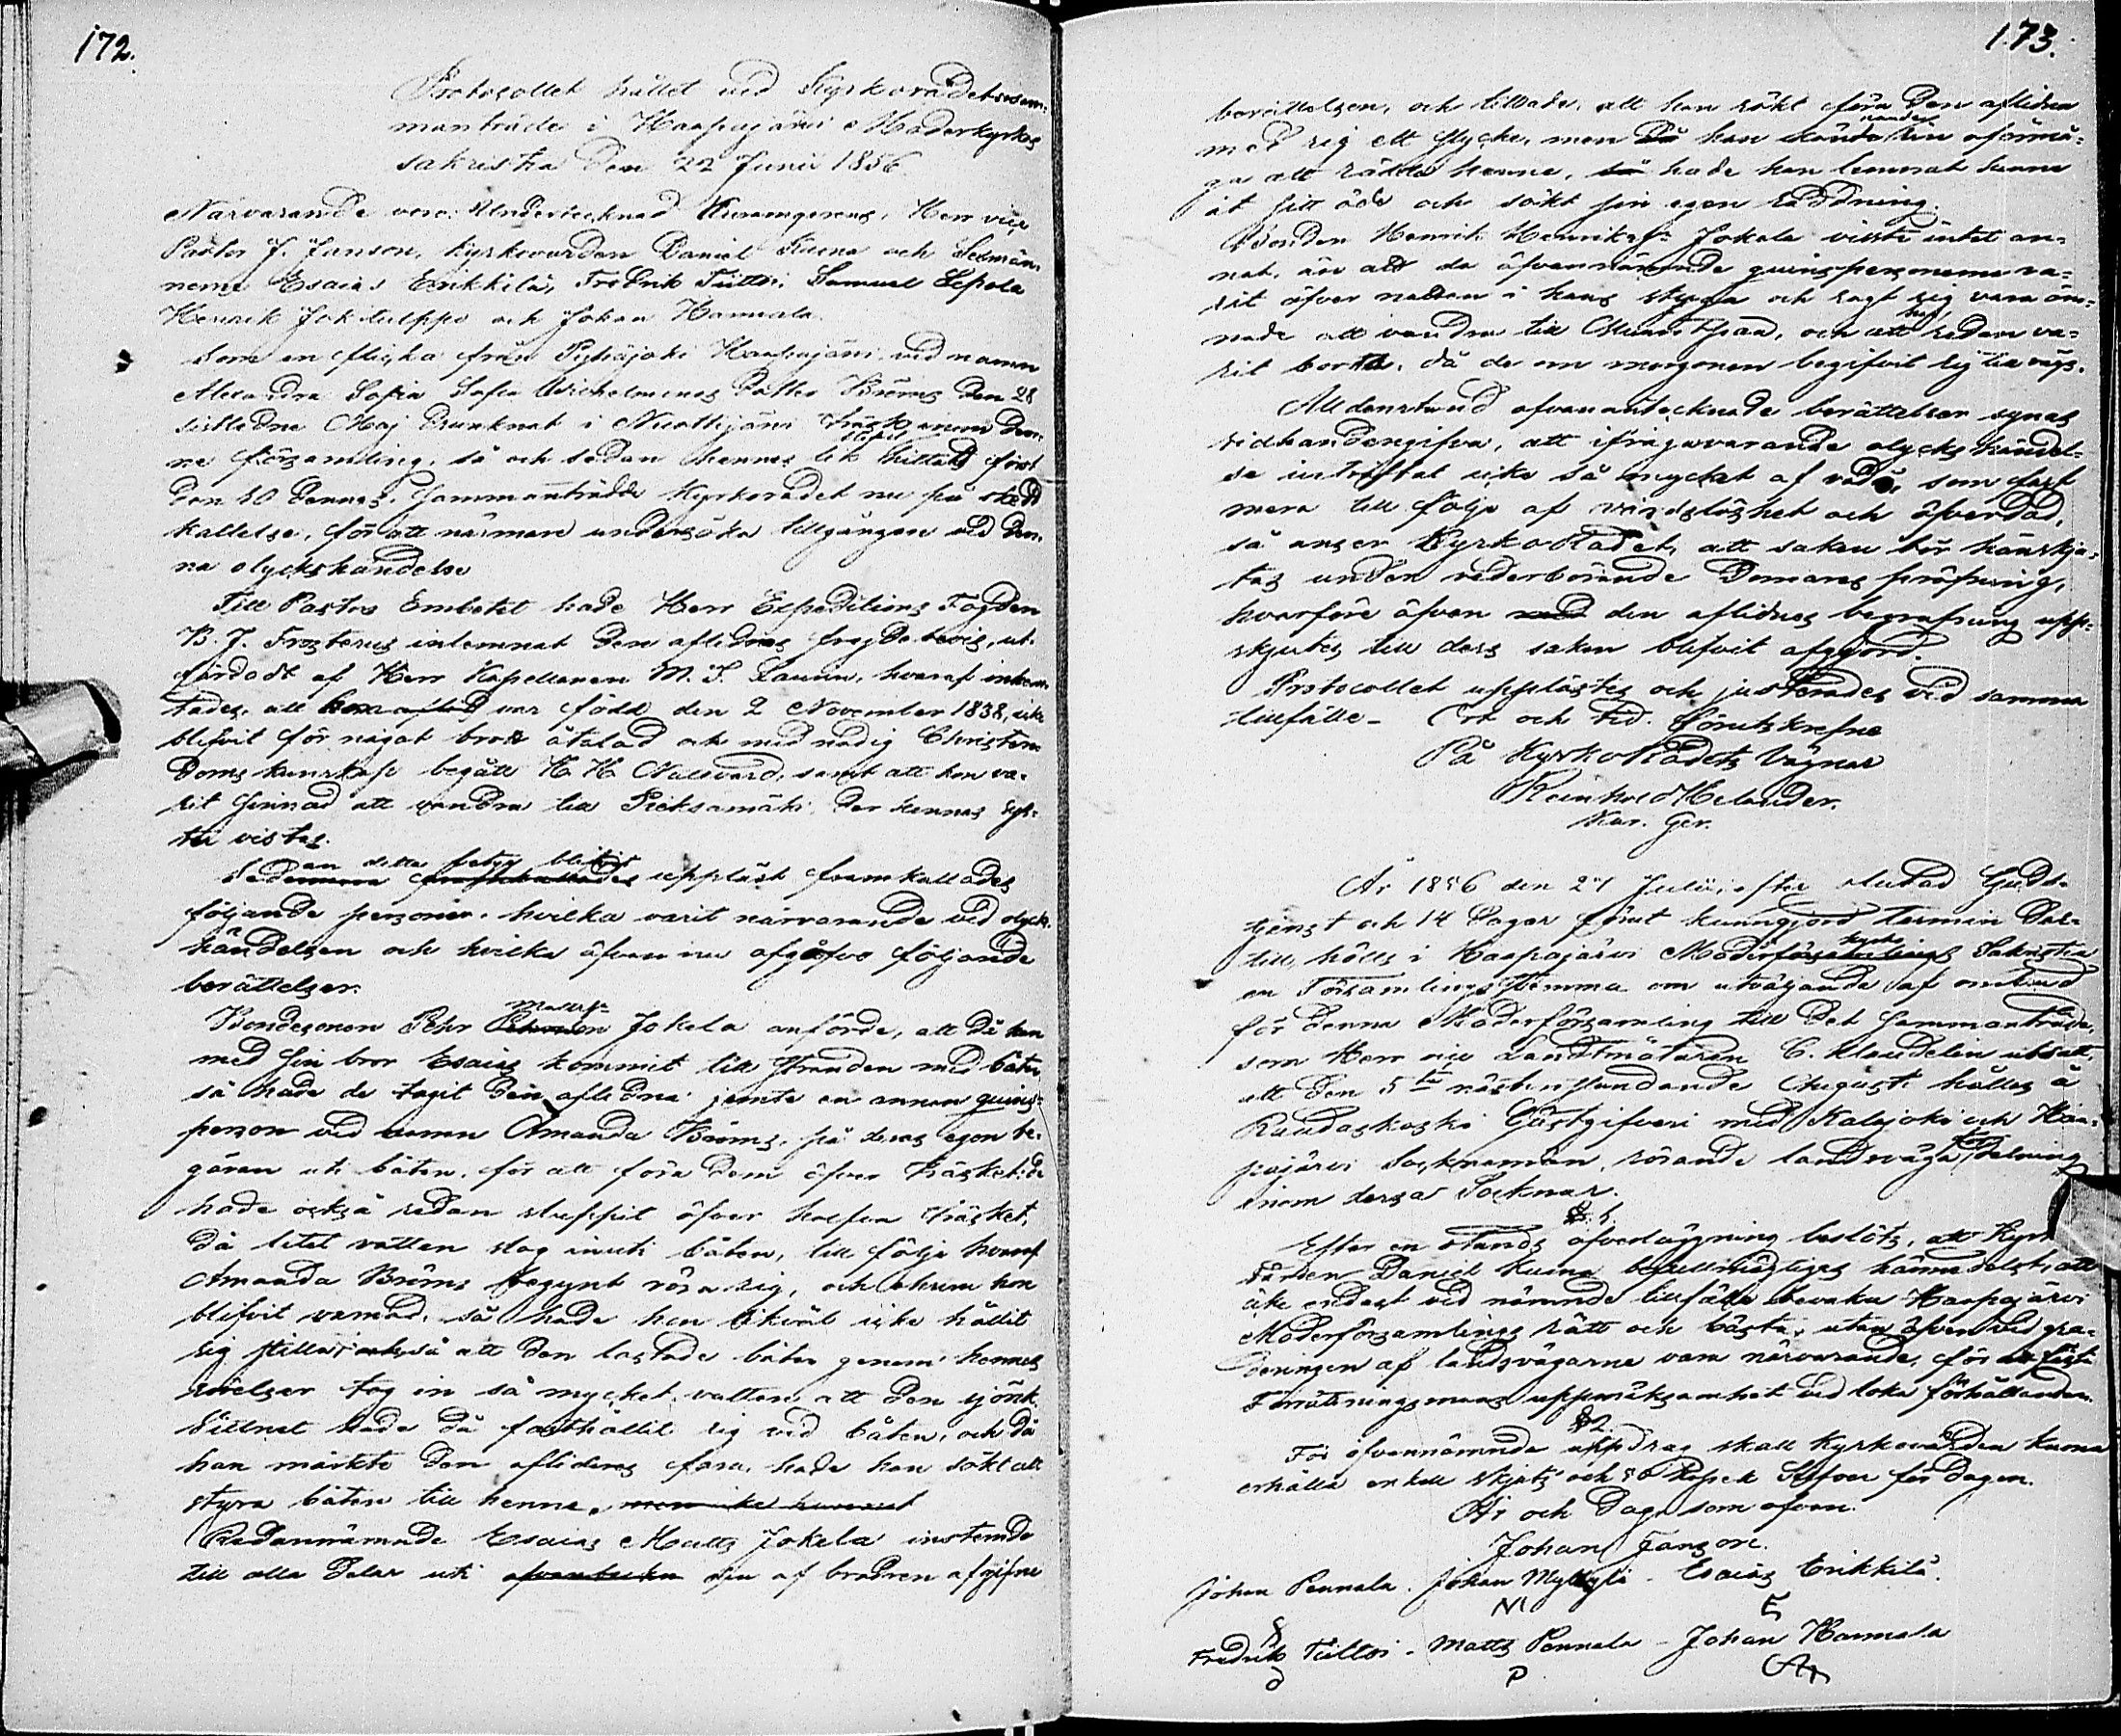 172.
Protocollet hållet vid Kyrkorådets sam-
manträde i Haapajärvi Moderkyrkas
sakristia den 22 Junii 1856.
Närvarande voro: Undertecknad Kuramgerens, Herr vice
Pastor J. Janson, Kyrkovärden Daniel Kuona och Sexmän-
nerna Esaias Erikkilä, Fredrik Tiitto, Samuel Lepola
Henrik Jokitulppo och Johan Hannala.
Som en flicka från Pyhäjoki Haapajärvi vid namn
Alexandra Sofia Sofia Wilhelmina dotter Broms den 28
sistledne Maj drunknat i Nuottijärvi träsk inom den-
na församling, så och sedan hennes lik blifvit hittadt först
den 10 dennes, sammanträdde Kyrkorådet nu på skedd
kallelse, för att närmare undersöka tillgången vid den-
na olyckshändelse
Till Pastors Embetet hade Herr Expeditions Fogden
B. J. Frosterus inlemnat den aflidnas frejdebevis, ut-
färdadt af Herr Kapellanen M. J. Laurin, hvaraf inhem-
tades, att hon aflid var född den 2 November 1838, icke
blifvit för något brott åtalad och med nödig Christen-
doms kunskap begått H. H. Nattvard, samt att hon va-
rit sinnad att vandra till Pieksamäki der hennes sys-
ter vistas.
Sedan detta betyg blifvit uppläst framkallades
följande personer, hvilka varit närvarande vid olycks-
händelsen och hvilka äfven nu afgåfvo följande
berättelser.
Bondesonen Pehr Mattss. Jokela anförde, att då han
med sin bror Esaias kommit till stranden med båten
så hade de tagit den aflidna jemte en annan qvins-
person vid namn Amanda Broms, på deras egen be-
gäran uti båten, för att föra dem öfver träsket; de
hade också redan sluppit öfver halfva träsket,
då litet vatten slog inuti båten, till följe hvaraf
Amanda Broms begynt röra sig, och ehuru hon
blifvit varnad, så hade hon likväl icke hållit
sig stilla; och så att den lastade båten genom hennes
rörelser tog in så mycket vatten att den sjönk.
Vittnet hade då fasthållit sig vid båten, och då
han märkte den aflidnas fara, hade han sökt att
styra båten till henne, men icke hunnit
Redannämnde Esaias Matts Jokela instemde
till alla delar uti den af brodren afgifne
173.
berättelsen, och tillade, att han sökt föra den aflidna
med sig ett stycke, men då han kände sin oförmå-
ga att rädda henne, så hade han lemnat henne
åt sitt öde och sökt sin egen räddning.
Bonden Henrik Henrikss. Jokela visste intet an-
nat, än att de åfvannämnde qvinspersonerna va-
rit öfver natten i hans stuga och sagt sig vara äm-
nade att vandra till, och att han redan va-
rit borta, då de om morgonen begifvit sig till vägs.
Alldenstund ofvanantecknade berättelser synas
vidhandengifva, att ifrågavarande olyckshändel-
se inträffat icke så mycket af våda, som fast
mera till följe af vårdslöshet och öfverdåd,
så anser KyrkoRådet, att saken bör hänskju-
tas under vederbörande Domares pröfning,
hvarföre äfven med den aflidnas begrafning upp-
skjutes till dess saken blifvit afgjord.
Protocollet upplästes och justerades vid samma
tillfälle. Ort och tid förutskrefne
På KyrkoRådets Vägnar
Reinhold Helander.
Kur. Ger.
År 1856 den 27 Julii, efter slutad Guds-
tjenst och 14 dagar förut kunngjord termin der-
till, hölls i Haapajärvi Moderkyrkas Sakristia
en Församlings Stemma om utväljande af ombud
för denna Moderförsamling till det sammanträde,
som Herr vice Landtmätaren C. Klaudelin utsatt,
att den 5te nästinstundande Augusti hållas å
Raudaskoski Gästgifveri med Kalajoki och Haa-
pajärvi Sockenemän, rörande landsväga delning
inom dessa Socknar.
§ 1.
Efter en stunds öfverläggning beslöts, att Kyrko-
värden Daniel Kuona befullmägtigas hännedelst, att
icke endast vid nämnde tillfälle bevaka Haapajärvi
Moderförsamlings rätt och bästa, utan äfven vid gra-
deringen af landsvägarne vara närvarande, för att fästa
Förrättningsmans uppmärksamhet vid loka förhållanden.
§ 2.
För ofvannämnde uppdrag skall Kyrkovärden Kuona
erhålla enkel skjuts och 50 Kopek Silfver för dagen.
År och Dag, som ofvan.
Johan Janson.
Johan Pennala. Johan Myllylä. Esaias Erikkilä.
Fredrik Tiitto. Matts Pennala. Johan Hannala